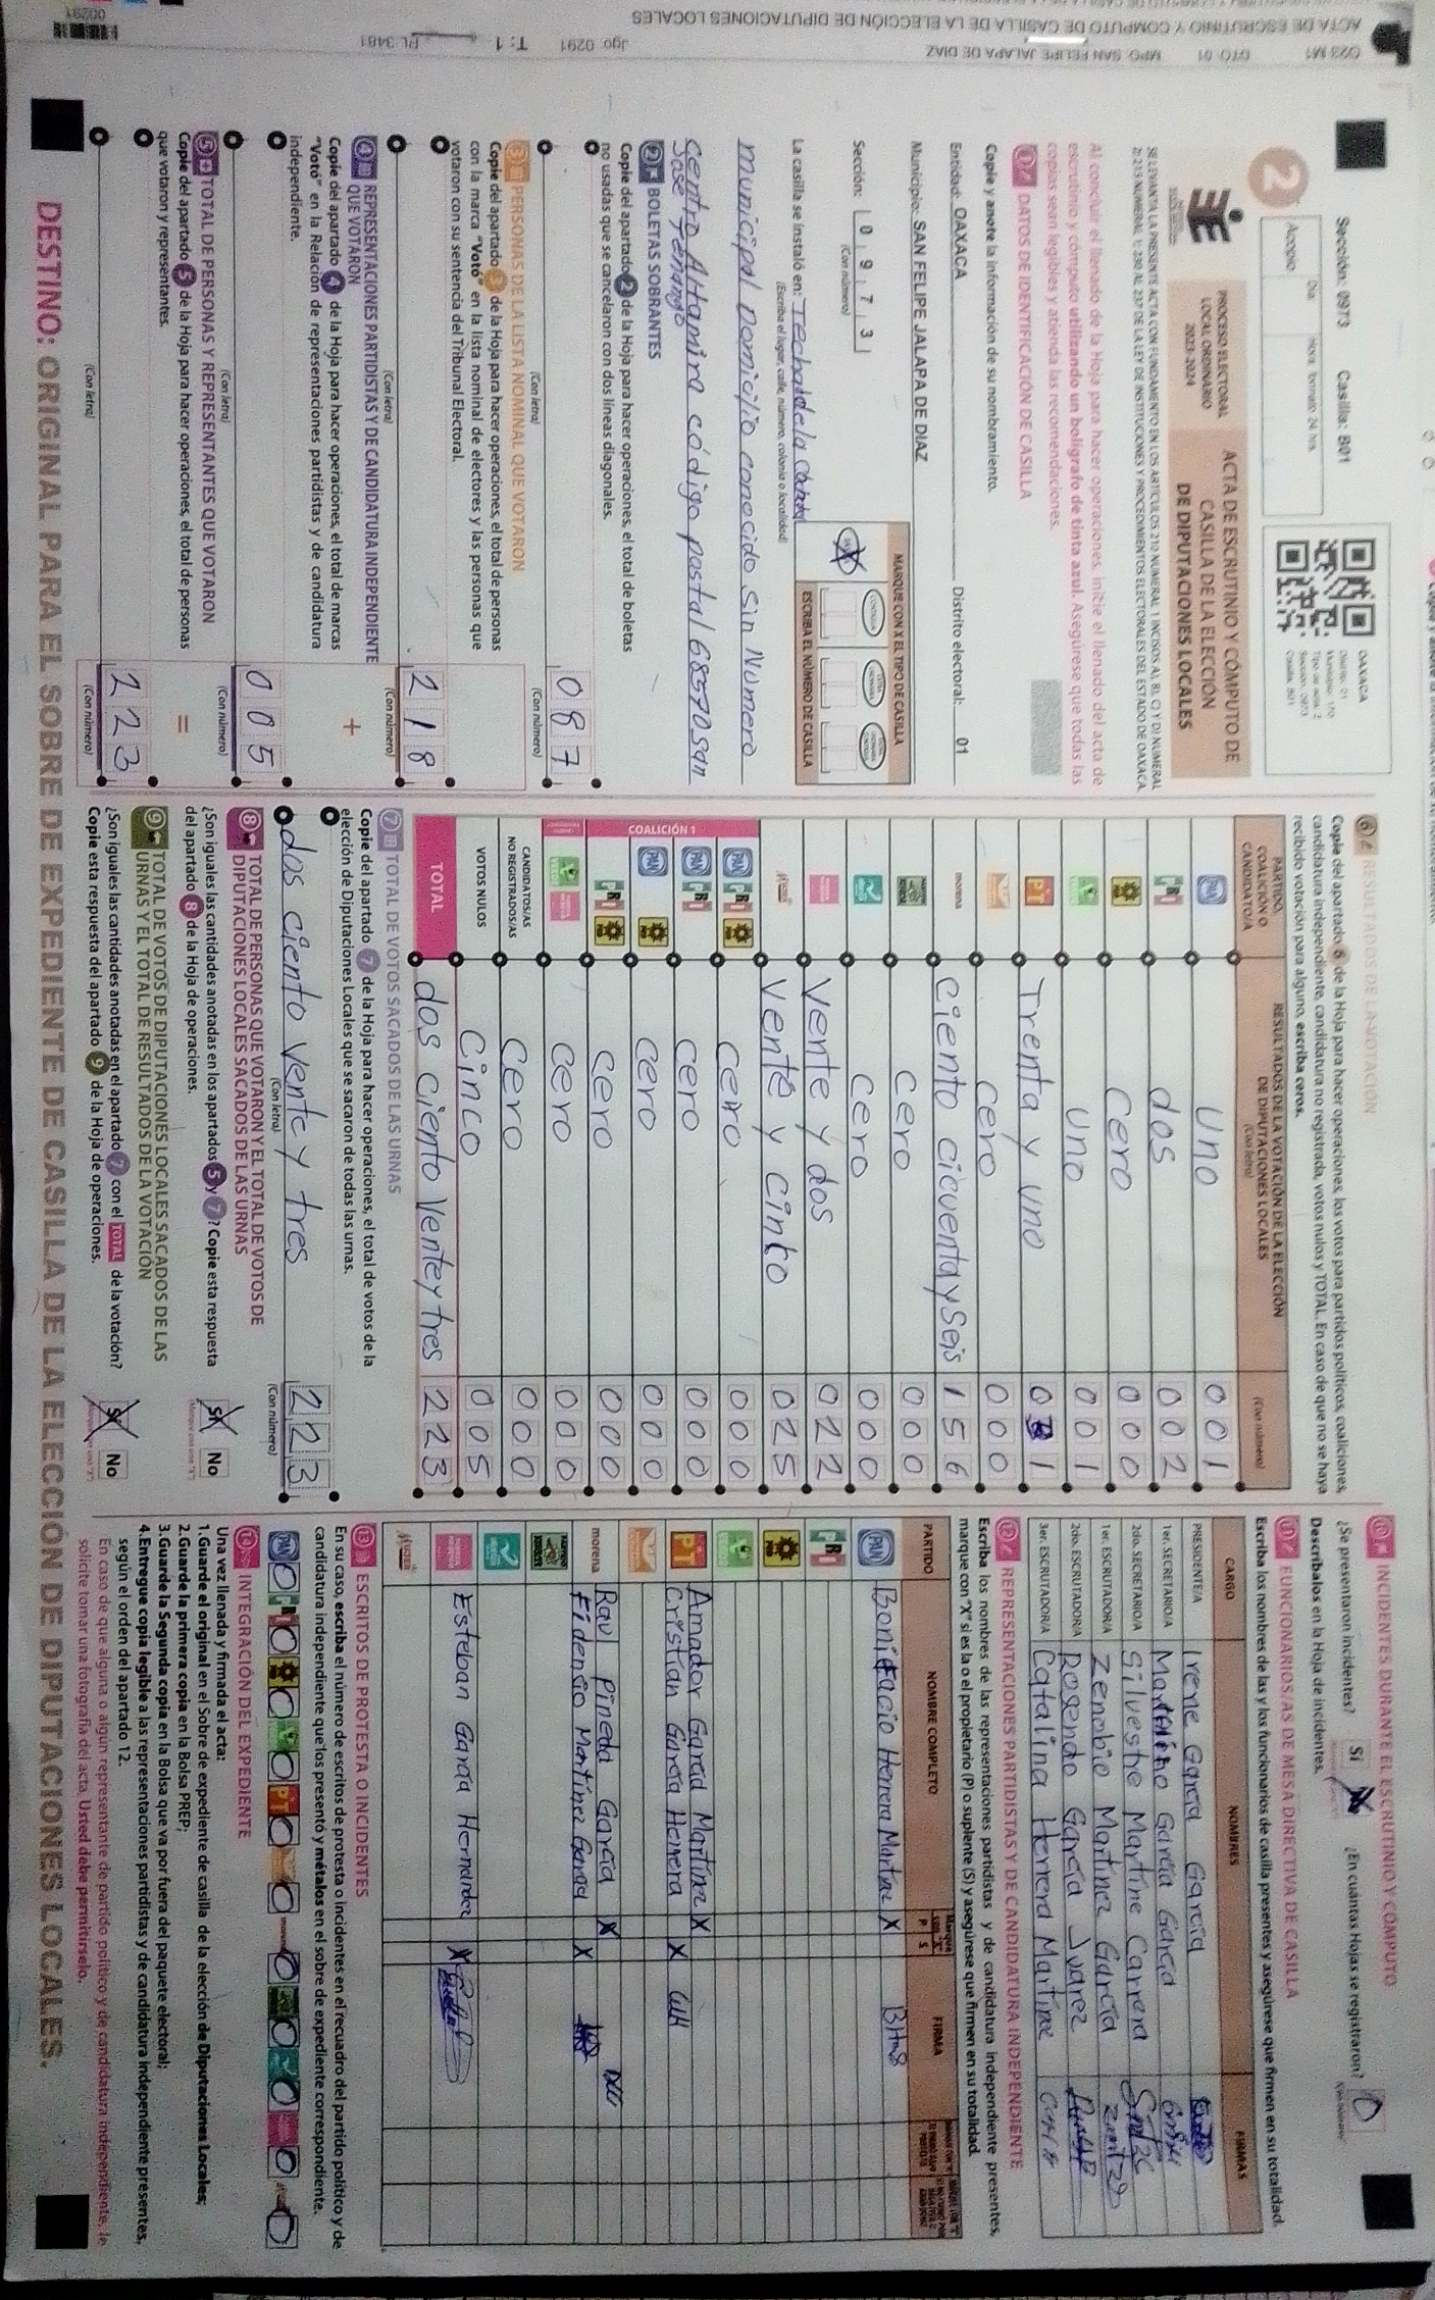 ACTA DE ESCRUTINIO Y CÓMPUTO DE CASILLA DE LA ELECCIÓN DE DIPUTACIONES LOCALES
023 M1 DTO: 01 MPO: SAN FELIPE JALAPA DE DIAZ Jgo: 0291 T: 1 PL: 3481
00291
Sección: 0973 Casilla: B01
Día Hora formato 24 hrs.
2
Acopio
OAXACA
PROCESO ELECTORAL
LOCAL ORDINARIO
2023-2024
ACTA DE ESCRUTINIO Y CÓMPUTO DE
CASILLA DE LA ELECCIÓN
DE DIPUTACIONES LOCALES
Al concluir el llenado de la Hoja para hacer operaciones, inicie el llenado del acta de
escrutinio y cómputo utilizando un bolígrafo de tinta azul. Asegúrese que todas las
copias sean legibles y atienda las recomendaciones.
1 DATOS DE IDENTIFICACIÓN DE CASILLA
Copie y anote la información de su nombramiento.
Entidad: OAXACA Distrito electoral: 01
Municipio: SAN FELIPE JALAPA DE DIAZ
Sección: 0 9 7 3
(Con número)
MARQUE CON X EL TIPO DE CASILLA
ESCRIBA EL NÚMERO DE CASILLA
La casilla se instaló en: Techado de la cancha
(Escriba el lugar, calle, número, colonia o localidad)
municipal Domicilio conocido sin Número
centro Altamira código postal 68570 San
Jose Tenango
2 BOLETAS SOBRANTES
Copie del apartado 2 de la Hoja para hacer operaciones, el total de boletas
no usadas que se cancelaron con dos líneas diagonales.
087
(Con letra) (Con número)
3 PERSONAS DE LA LISTA NOMINAL QUE VOTARON
Copie del apartado 3 de la Hoja para hacer operaciones, el total de personas
con la marca "Votó" en la lista nominal de electores y las personas que
votaron con su sentencia del Tribunal Electoral.
218
(Con letra) (Con número)
4 REPRESENTACIONES PARTIDISTAS Y DE CANDIDATURA INDEPENDIENTE
QUE VOTARON +
Copie del apartado 4 de la Hoja para hacer operaciones, el total de marcas
"Votó" en la Relación de representaciones partidistas y de candidatura
independiente.
005
(Con letra) (Con número)
5 TOTAL DE PERSONAS Y REPRESENTANTES QUE VOTARON
Copie del apartado 5 de la Hoja para hacer operaciones, el total de personas =
que votaron y representantes.
223
(Con letra) (Con número)
6 RESULTADOS DE LA VOTACIÓN
Copie del apartado 6 de la Hoja para hacer operaciones, los votos para partidos políticos, coaliciones,
candidatura independiente, candidatura no registrada, votos nulos y TOTAL. En caso de que no se haya
recibido votación para alguno, escriba ceros.
PARTIDO, COALICIÓN O CANDIDATO/A
RESULTADOS DE LA VOTACIÓN DE LA ELECCIÓN DE DIPUTACIONES LOCALES
(Con letra) (Con número)
PAN Uno 001
PRI dos 002
PRD Cero 000
VERDE Uno 001
PT Trenta y uno 031
cero 000
morena Ciento cicuenta y Seis 156
cero 000
cero 000
Vente y dos 022
Venté y cinto 025
COALICIÓN 1
PAN PRI PRD cero 000
PAN PRI cero 000
PAN PRD cero 000
PRI PRD cero 000
cero 000
CANDIDATOS/AS NO REGISTRADOS/AS cero 000
VOTOS NULOS Cinco 005
TOTAL dos ciento Vente y tres 223
7 TOTAL DE VOTOS SACADOS DE LAS URNAS
Copie del apartado 7 de la Hoja para hacer operaciones, el total de votos de la
elección de Diputaciones Locales que se sacaron de todas las urnas.
dos ciento vente y tres 223
(Con letra) (Con número)
8 TOTAL DE PERSONAS QUE VOTARON Y EL TOTAL DE VOTOS DE
DIPUTACIONES LOCALES SACADOS DE LAS URNAS
¿Son iguales las cantidades anotadas en los apartados 5 y 7? Copie esta respuesta
del apartado 8 de la Hoja de operaciones.
Sí No
9 TOTAL DE VOTOS DE DIPUTACIONES LOCALES SACADOS DE LAS
URNAS Y EL TOTAL DE RESULTADOS DE LA VOTACIÓN
¿Son iguales las cantidades anotadas en el apartado 7 con el TOTAL de la votación?
Copie esta respuesta del apartado 9 de la Hoja de operaciones.
Sí No
10 INCIDENTES DURANTE EL ESCRUTINIO Y CÓMPUTO
¿Se presentaron incidentes? Sí ¿En cuántas Hojas se registraron? 0
Descríbalos en la Hoja de incidentes.
11 FUNCIONARIOS/AS DE MESA DIRECTIVA DE CASILLA
Escriba los nombres de las y los funcionarios de casilla presentes y asegúrese que firmen en su totalidad.
CARGO NOMBRES FIRMAS
PRESIDENTE/A Irene García García
1er. SECRETARIO/A García García
2do. SECRETARIO/A Silvestre Martíne Carrera
1er. ESCRUTADOR/A Zenobio Martínez García
2do. ESCRUTADOR/A Rogendo García Juarez
3er. ESCRUTADOR/A Catalina Herrera Martínez
12 REPRESENTACIONES PARTIDISTAS Y DE CANDIDATURA INDEPENDIENTE
Escriba los nombres de las representaciones partidistas y de candidatura independiente presentes,
marque con "X" si es la o el propietario (P) o suplente (S) y asegúrese que firmen en su totalidad.
PARTIDO NOMBRE COMPLETO P S FIRMA
PAN Bonifacio Herrera Martínez X
PRI
PRD
VERDE
PT Amador García Martínez X
Cristian García Herrera X
morena Raul Pineda García X
Fidencio Martínez García X
Esteban García Hernandez X
13 ESCRITOS DE PROTESTA O INCIDENTES
En su caso, escriba el número de escritos de protesta o incidentes en el recuadro del partido político y de
candidatura independiente que los presentó y métalos en el sobre de expediente correspondiente.
PAN 0 PRI 0 0 0 PT 0 0 0 0 0 0 0
14 INTEGRACIÓN DEL EXPEDIENTE
Una vez llenada y firmada el acta:
1.Guarde el original en el Sobre de expediente de casilla de la elección de Diputaciones Locales;
2.Guarde la primera copia en la Bolsa PREP;
3.Guarde la Segunda copia en la Bolsa que va por fuera del paquete electoral;
4.Entregue copia legible a las representaciones partidistas y de candidatura independiente presentes,
según el orden del apartado 12.
En caso de que alguna o algún representante de partido político y de candidatura independiente, le
solicite tomar una fotografía del acta, Usted debe permitírselo.
DESTINO: ORIGINAL PARA EL SOBRE DE EXPEDIENTE DE CASILLA DE LA ELECCIÓN DE DIPUTACIONES LOCALES.